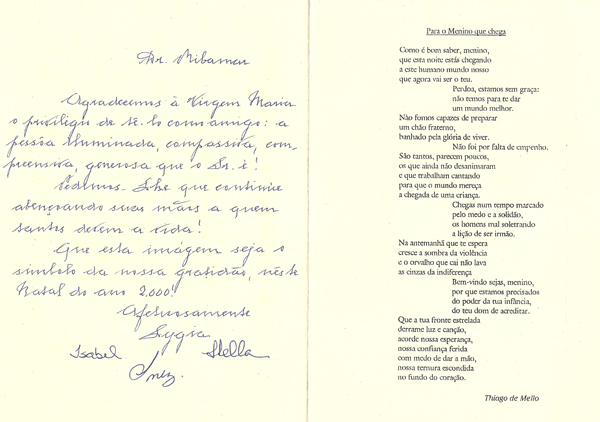 Dr. Ribamar
Agradecemos à Virgem Maria
o privilégio de tê-lo como amigo: a
pessoa iluminada, compassiva, com-
preensiva, generosa que o Sr. é!
Pedimos-Lhe que continue
abençoando suas mãos a quem
tantos devem a vida!
Que esta imagem seja o
símbolo da nossa gratidão, neste
Natal do ano 2.000!
Afetuosamente
Lygia
Isabel Stella
Inez.
Para o Menino que chega
Como é bom saber, menino,
que esta noite estás chegando
a este humano mundo nosso
que agora vai ser o teu.
Perdoa, estamos sem graça:
não temos para te dar
um mundo melhor.
Não fomos capazes de preparar
um chão fraterno,
banhado pela glória de viver.
Não foi por falta de empenho.
São tantos, parecem poucos,
os que ainda não desanimaram
e que trabalham cantando
para que o mundo mereça
a chegada de uma criança.
Chegas num tempo marcado
pelo medo e a solidão,
os homens mal soletrando
a lição de ser irmão.
Na antemanhã que te espera
cresce a sombra da violência
e o orvalho que cai não lava
as cinzas da indiferença
Bem-vindo sejas, menino,
por que estamos precisados
do poder da tua infância,
do teu dom de acreditar.
Que a tua fronte estrelada
derrame luz e canção,
acorde nossa esperança,
nossa confiança ferida
com medo de dar a mão,
nossa ternura escondida
no fundo do coração.
Thiago de Mello